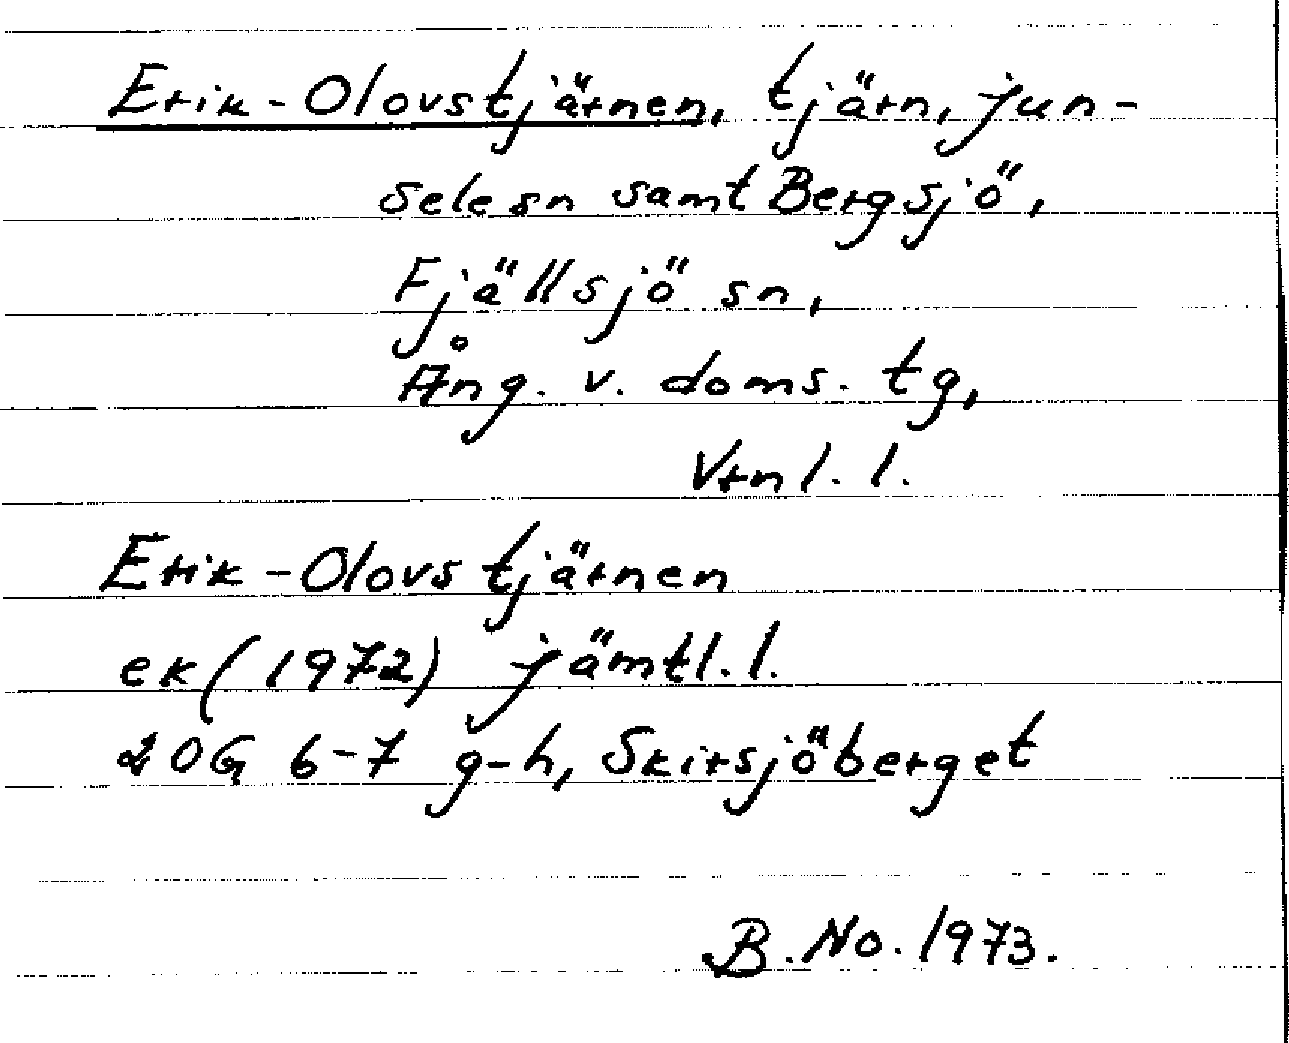 Erik-Olovstjärnen, tjärn, Jun-
sele sn samt Bergsjö,
Fjällsjö sn,
Ång. v. doms. tg,
Vrnl. l.
Erik-Olovstjärnen
ek (1972) Jämtl. l.
20G 6-7 g-h, Skirsjöberget
B. No. 1973.